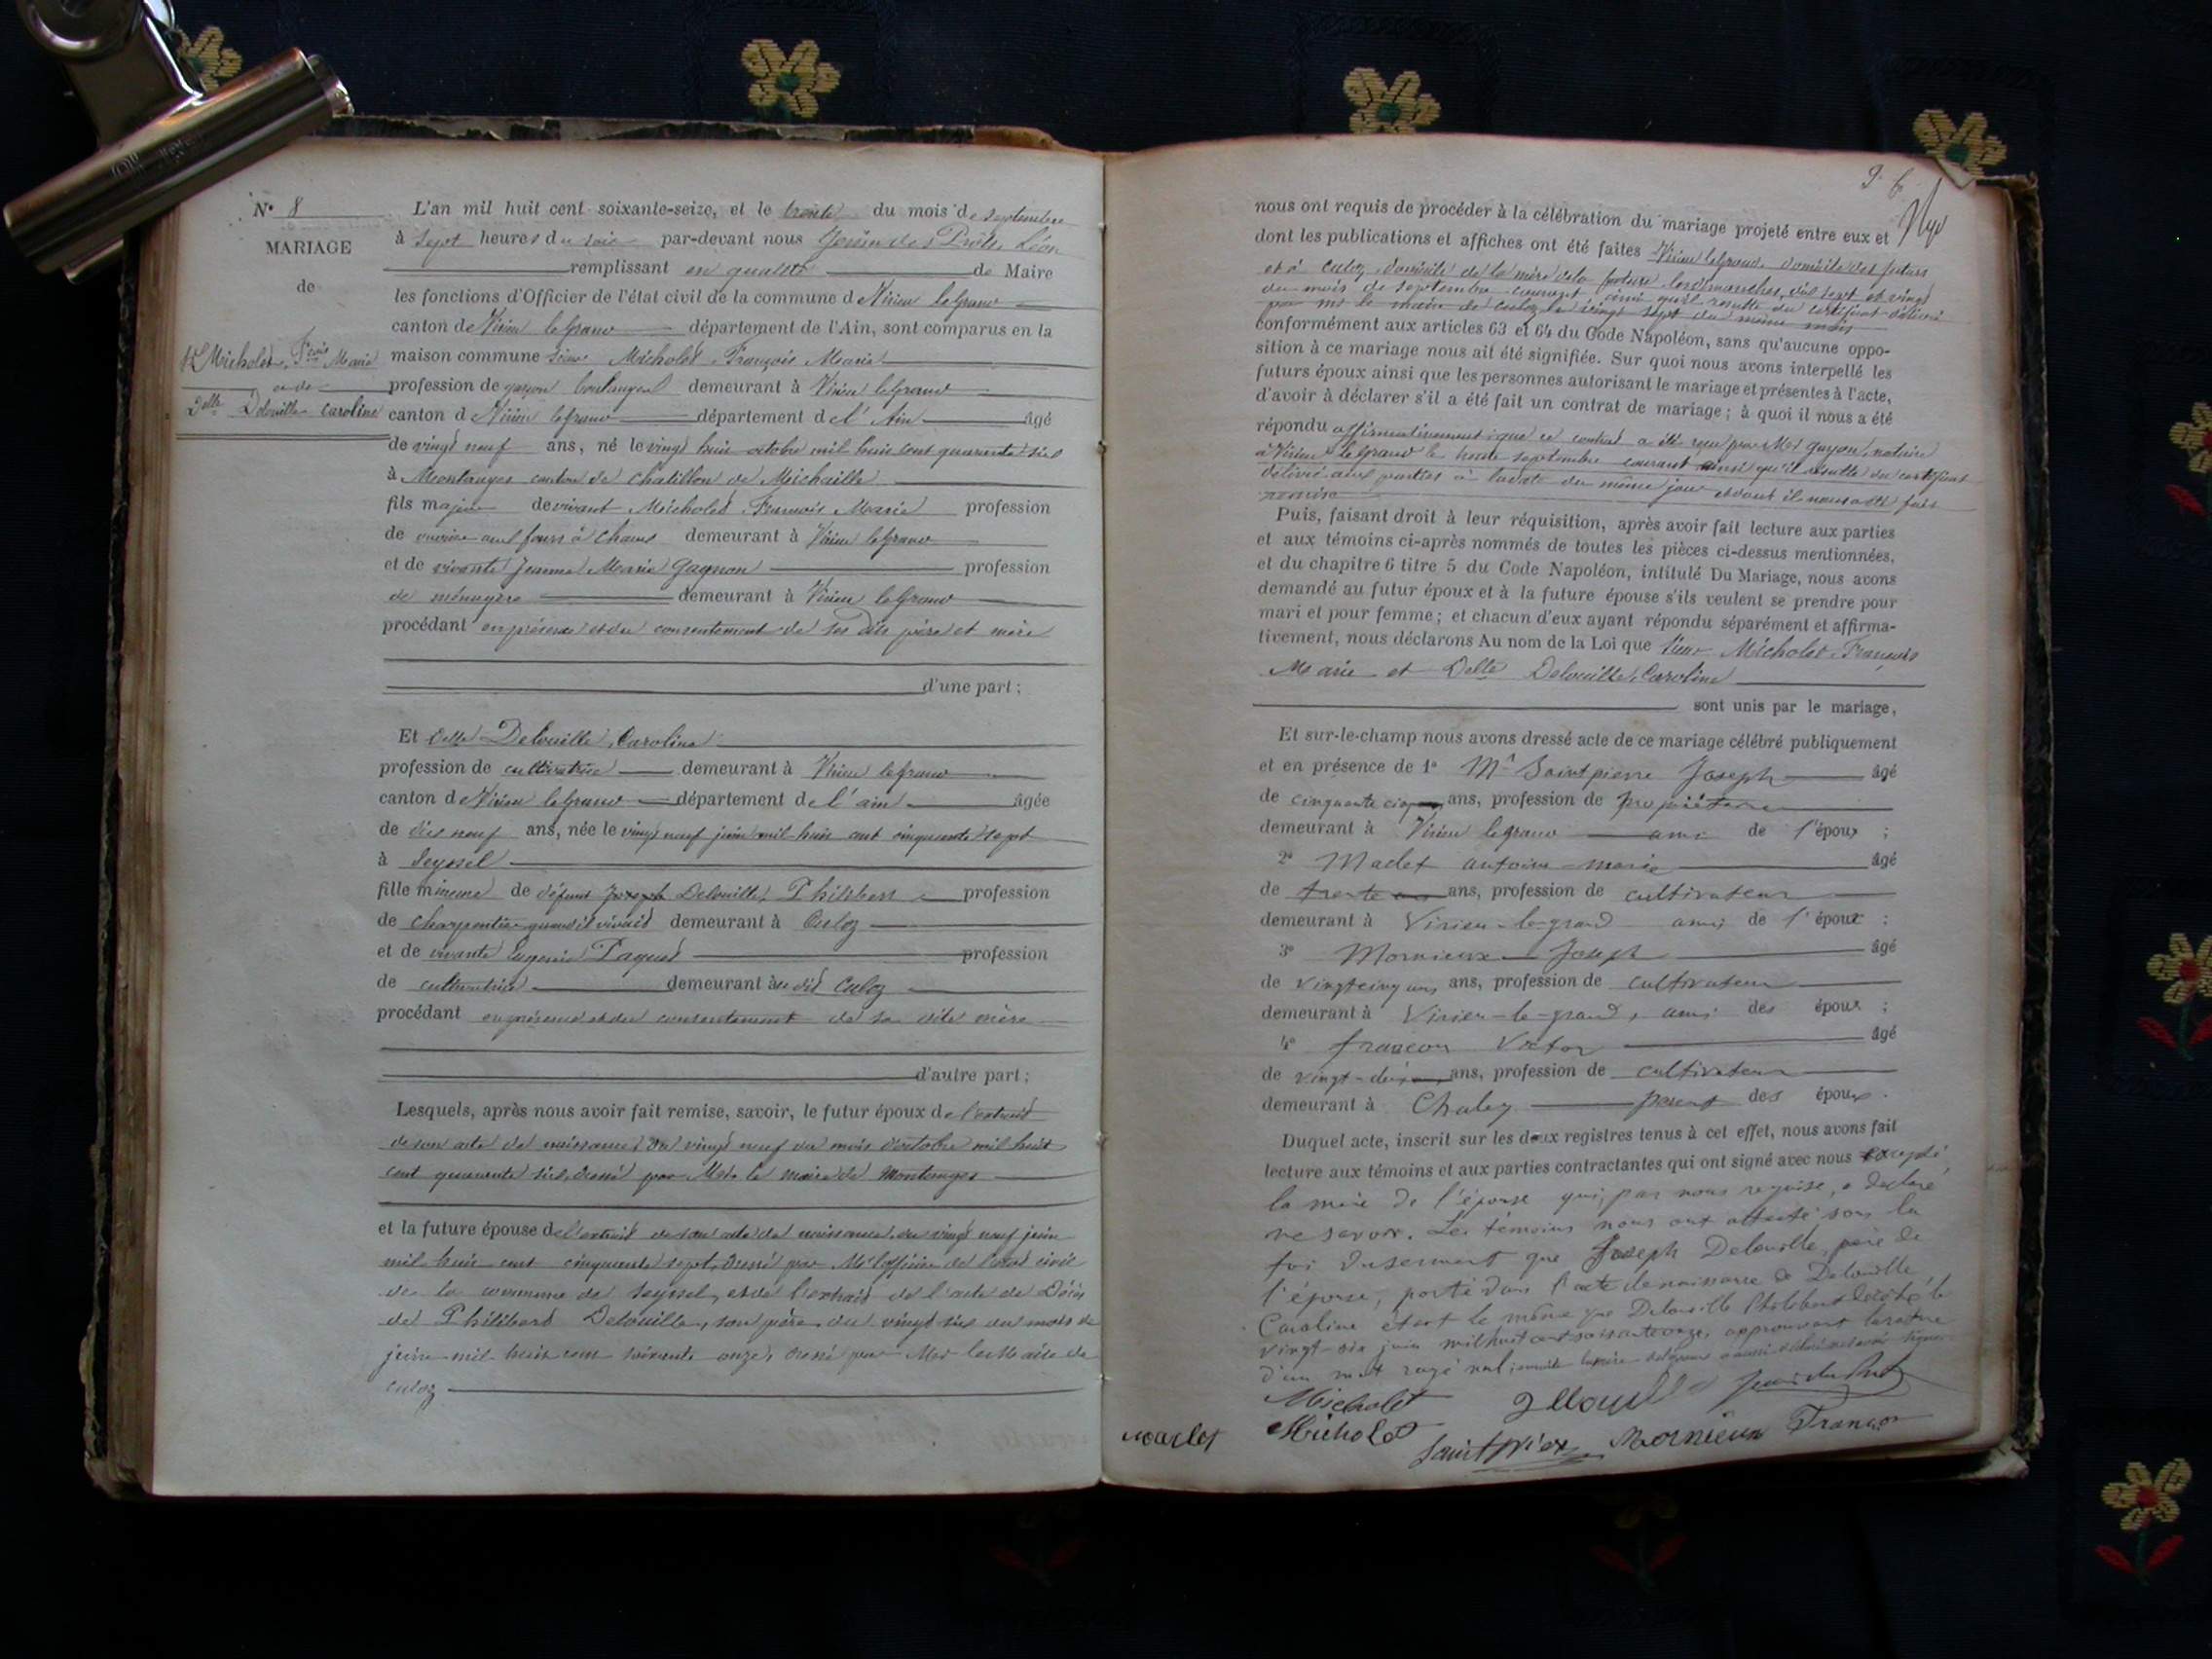 N° 8
MARIAGE
de
Sr Micholet, Fçois Marie
et de
Delle Delouille Caroline
L'an mil huit cent soixante-seize, et le trente du mois de septembre
à sept heures du soir par-devant nous Léon
remplissant en qualité de Maire
les fonctions d'Officier de l'état civil de la commune de Virieu le grand
canton de Virieu le grand département de l'Ain, sont comparus en la
maison commune sieur Micholet François Marie
profession de garçon boulanger demeurant à Virieu le grand
canton de Virieu le grand département de l'Ain âgé
de vingt neuf ans, né le vingt huit octobre mil huit cent quarante six
à Montanges canton de Chatillon de Michaille
fils majeur de vivant Micholet François Marie profession
de ouvrier aux fours à chaux demeurant à Virieu le grand
et de vivante Jeanne Marie Gagnon profession
de ménagère demeurant à Virieu le grand
procédant en présence et du consentement de ses dits père et mère
d'une part ;
Et Delle Delouille, Caroline
profession de cultivatrice demeurant à Virieu le grand
canton de Virieu le grand département de l'ain âgée
de dix neuf ans, née le vingt neuf juin mil huit cent cinquante sept
à Seyssel
fille mineure de défunt Joseph Delouille, Philibert profession
de charpentier quand il vivait demeurant à Culoz
et de vivante Eugénie Paquet profession
de cultivatrice demeurant au dit Culoz
procédant en présence et du consentement de sa dite mère
d'autre part ;
Lesquels, après nous avoir fait remise, savoir, le futur époux de l'extrait
de son acte de naissance, du vingt neuf du mois d'octobre mil huit
cent quarante six, dressé par Mr le maire de Montanges
et la future épouse de l'extrait de son acte de naissance, du vingt neuf juin
mil huit cent cinquante sept, dressé par Mr l'officier de l'état civil
de la commune de Seyssel, et de l'extrait de l'acte de Décès
de Philibert Delouille, son père du vingt six du mois de
juin mil huit cent soixante onze, dressé par Mr le Maire de
culoz
nous ont requis de procéder à la célébration du mariage projeté entre eux et
dont les publications et affiches ont été faites Virieu le grand, domicile des futurs
et à culoz, domicile de la mère de la future les dimanches, dix sept et vingt
du mois de septembre courant, ainsi qu'il résulte du certificat délivré
par mr le maire de culoz le vingt sept du même mois
conformément aux articles 63 et 64 du Code Napoléon, sans qu'aucune oppo-
sition à ce mariage nous ait été signifiée. Sur quoi nous avons interpellé les
futurs époux ainsi que les personnes autorisant le mariage et présentes à l'acte,
d'avoir à déclarer s'il a été fait un contrat de mariage ; à quoi il nous a été
répondu affirmativement que ce contrat a été reçu par Me guyon, notaire
à Virieu le grand le trente septembre courant ainsi qu'il résulte du certificat
délivré aux parties à la date du même jour et dont il nous a été fait
remise
Puis, faisant droit à leur réquisition, après avoir fait lecture aux parties
et aux témoins ci-après nommés de toutes les pièces ci-dessus mentionnées,
et du chapitre 6 titre 5 du Code Napoléon, intitulé Du Mariage, nous avons
demandé au futur époux et à la future épouse s'ils veulent se prendre pour
mari et pour femme ; et chacun d'eux ayant répondu séparément et affirma-
tivement, nous déclarons Au nom de la Loi que sieur Micholet, François
Marie et Delle Delouille, Caroline
sont unis par le mariage,
Et sur-le-champ nous avons dressé acte de ce mariage célébré publiquement
et en présence de 1° Mr Saintpierre Joseph âgé
de cinquante cinq ans, profession de propriétaire
demeurant à Virieu le grand ami de l'époux ;
2° Maclet antoine marie âgé
de trente ans, profession de cultivateur
demeurant à Virieu-le-grand ami de l'époux ;
3° Mornieux Joseph âgé
de vingtcinq ans, profession de cultivateur
demeurant à Virieu-le-grand, ami des époux ;
4° françon Victor âgé
de vingt-deux ans, profession de cultivateur
demeurant à Chaley parent des époux.
Duquel acte, inscrit sur les deux registres tenus à cet effet, nous avons fait
lecture aux témoins et aux parties contractantes qui ont signé avec nous excepté
la mère de l'épouse qui, par nous requise, a déclaré
ne savoir. Les témoins nous ont attesté sous la
foi du serment que Joseph Delouille, père de
l'épouse, porté dans l'acte de naissance de Delouille
Caroline etait le même que Delouille Philibert décédé le
vingt-six juin mil huit cent soixante onze, approuvant la rature
d'un mot rayé nul, ensuite la mère a aussi déclaré ne savoir signer
Micholet
Micholet
Maclet Saintpierre Mornieux Françon